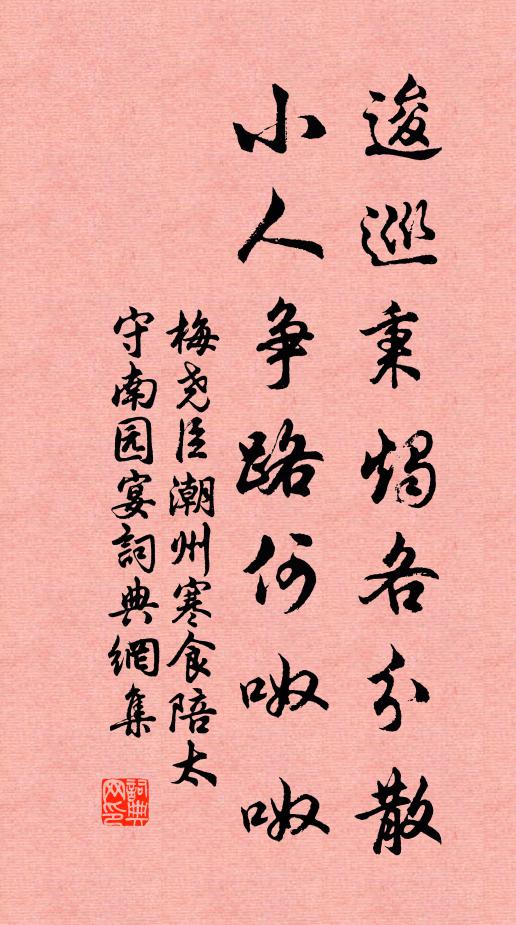 逡巡秉燭各分散
小人争路何呶呶
梅尧臣潮州寒食陪太
守南园宴詞典網集
詞典网印